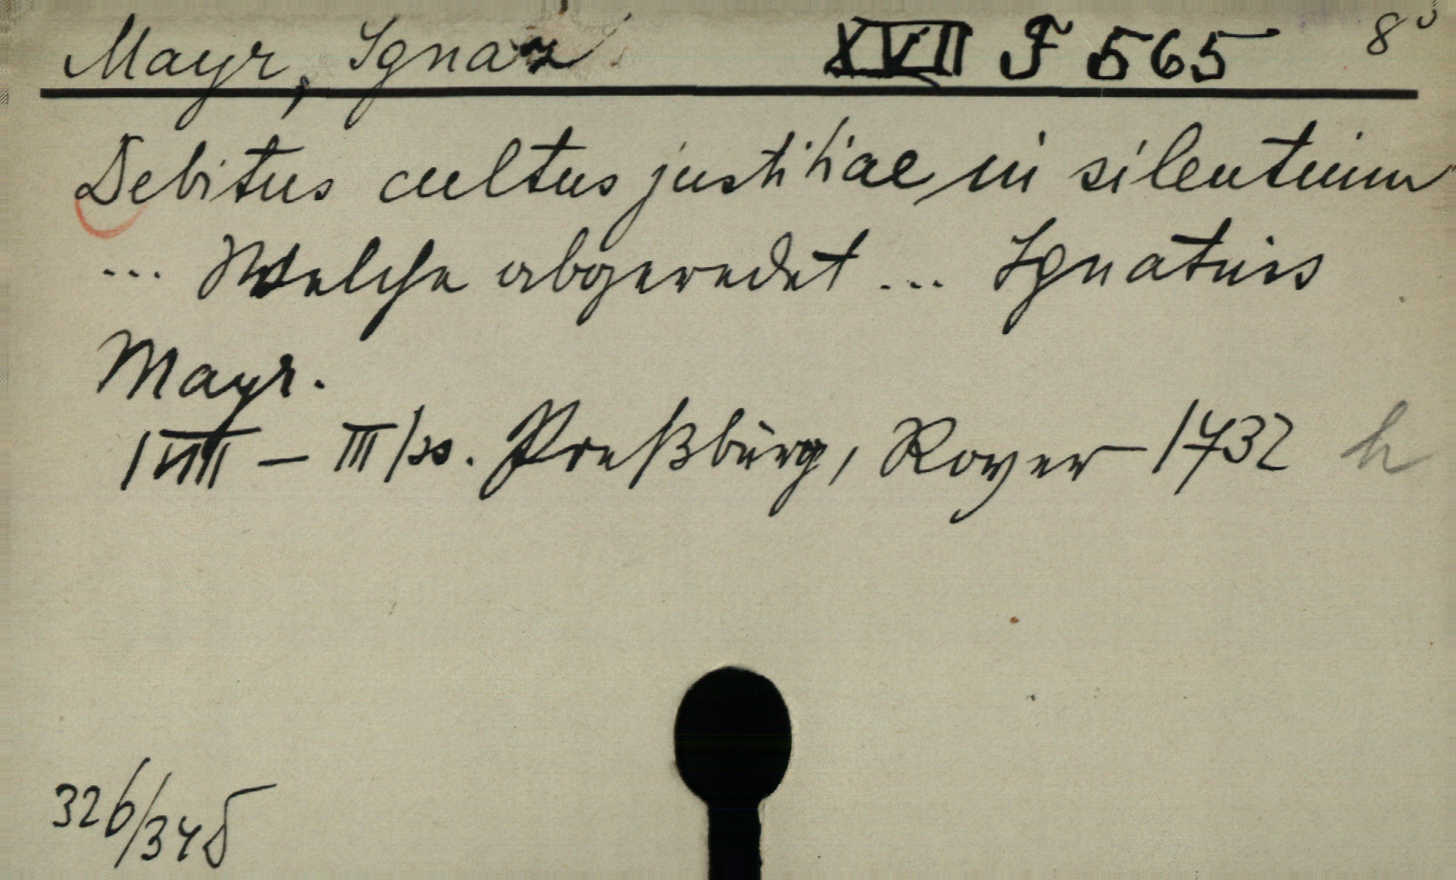 Mayr, Ignaz XVII F 565 8°
Debitus cultus justitiae in silentium
... Welche abgeredet ... Ignatius
Mayr.
Preßburg, Royer 1732 h
326/345